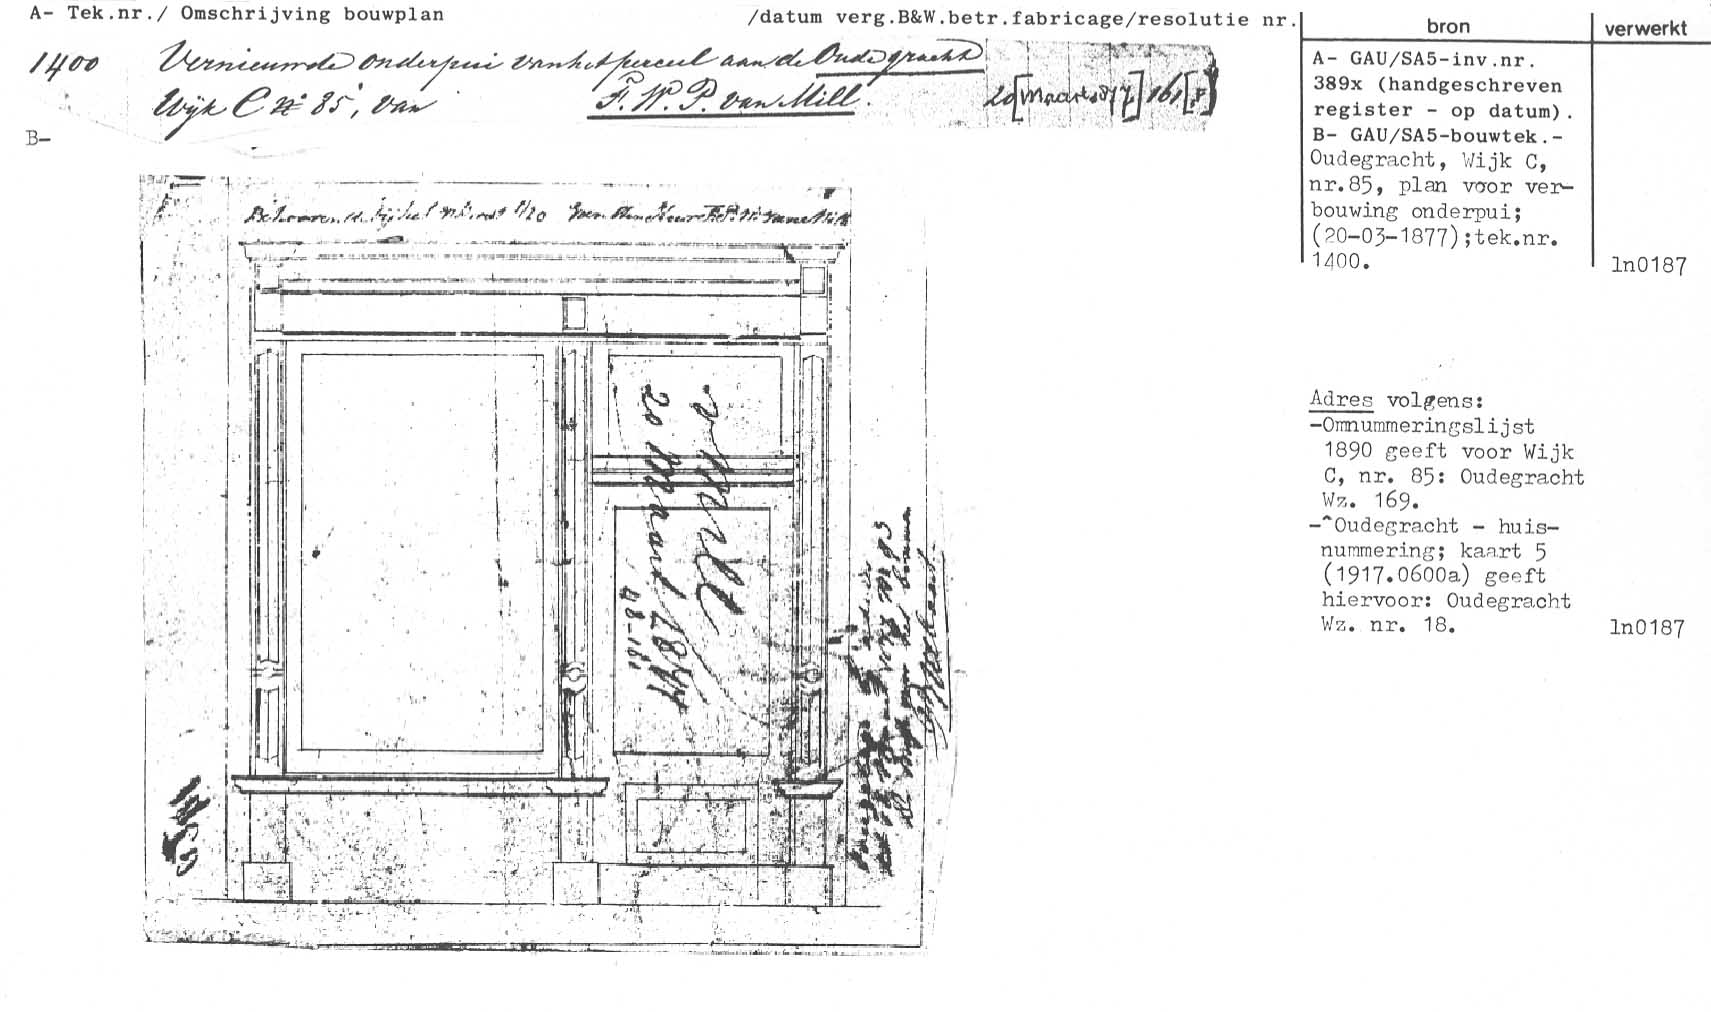 A- Tek.nr./ Omschrijving bouwplan
/datum verg.B&W.betr.fabricage/resolutie nr.
bron
verwerkt
1400 Vernieuwde onderpui van het perceel aan de Oude gracht
Wijk C No 85, van F. W. P. van Mill.
20 [Maart 1877] 161 [F]
B-
A- GAU/SA5-inv.nr.
389x (handgeschreven
register - op datum).
B- GAU/SA5-bouwtek.-
Oudegracht, Wijk C,
nr.85, plan voor ver-
bouwing onderpui;
(20-03-1877);tek.nr.
1400.
ln0187
Adres volgens:
-Omnummeringslijst
1890 geeft voor Wijk
C, nr. 85: Oudegracht
Wz. 169.
-^Oudegracht - huis-
nummering; kaart 5
(1917.0600a) geeft
hiervoor: Oudegracht
Wz. nr. 18.
ln0187
v Mill
20 Maart 1877